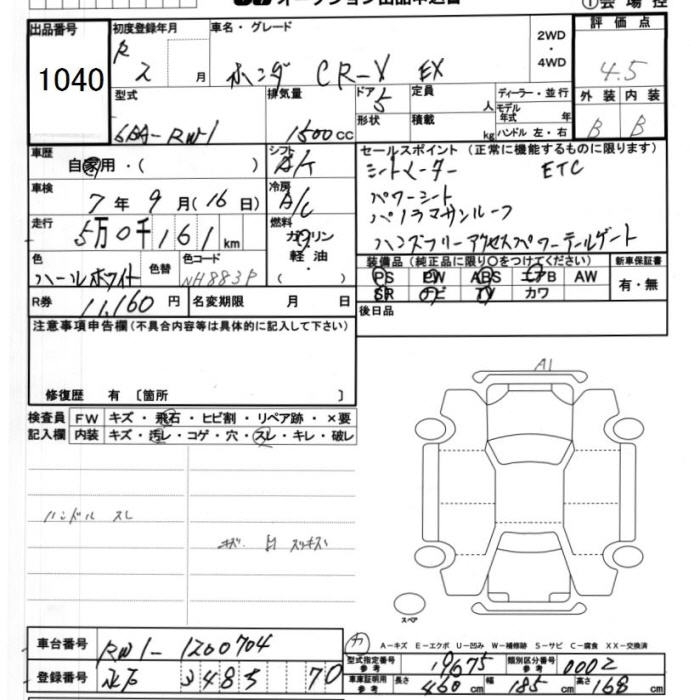 オークション出品申込書
①会場控
出品番号 1040
初度登録年月 R 2 月
車名・グレード ホンダ CR-V EX
2WD・4WD
評価点 4.5
外装 B 内装 B
型式 6BA-RW1
排気量 1500cc
ドア 5
形状
定員 人
積載 kg
ディーラー・並行
モデル年式 年
ハンドル 左・右
車歴 自家用・( )
シフト A/T
車検 7年9月(16日)
冷房 A/C
走行 5万0千161km
燃料 ガソリン 軽油・( )
色 パールホワイト
色替
色コード NH883P
R券 11,160円
名変期限 月 日
セールスポイント(正常に機能するものに限ります)
シートヒーター ETC
パワーシート
パノラマサンルーフ
ハンズフリーアクセスパワーテールゲート
装備品(純正品に限り○をつけてください)
PS PW ABS エアB AW
SR のビ TV カワ
新車保証書 有・無
後日品
注意事項申告欄(不具合内容等は具体的に記入して下さい)
修復歴 有〔箇所 〕
検査員記入欄
FW キズ・飛石・ヒビ割・リペア跡・×要
内装 キズ・汚レ・コゲ・穴・スレ・キレ・破レ
ハンドル スレ
A1
スペア
A-キズ E-エクボ U-凹み W-補修跡 S-サビ C-腐食 XX-交換済
車台番号 RW1-1200704
登録番号 3485 70
型式指定番号 参考 19675
類別区分番号 参考 0002
車庫証明用 参考 長さ 460cm 幅 185cm 高さ 168cm